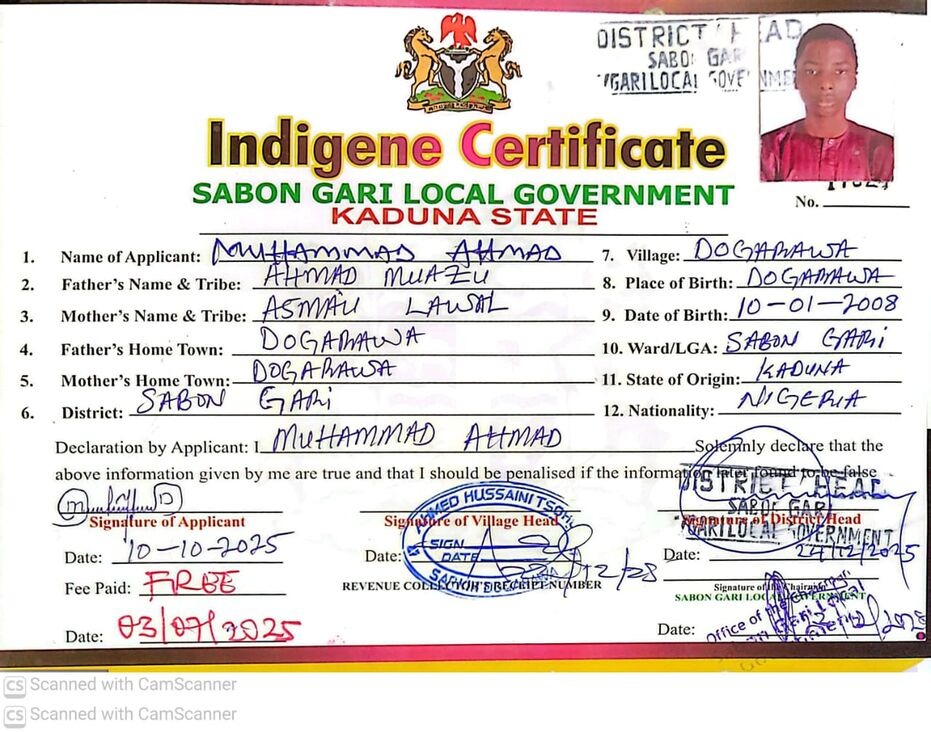 DISTRICT HEAD
SABON GARI
GARI LOCAL GOVERNMENT
Indigene Certificate
SABON GARI LOCAL GOVERNMENT
KADUNA STATE
No.
1. Name of Applicant: MUHAMMAD AHMAD
2. Father's Name & Tribe: AHMAD MUAZU
3. Mother's Name & Tribe: ASMA'U LAWAL
4. Father's Home Town: DOGARAWA
5. Mother's Home Town: DOGARAWA
6. District: SABON GARI
7. Village: DOGARAWA
8. Place of Birth: DOGARAWA
9. Date of Birth: 10-01-2008
10. Ward/LGA: SABON GARI
11. State of Origin: KADUNA
12. Nationality: NIGERIA
Declaration by Applicant: I MUHAMMAD AHMAD Solemnly declare that the
above information given by me are true and that I should be penalised if the information later found to be false
Signature of Applicant
Date: 10-10-2025
Fee Paid: FREE
Date: 03/07/2025
AHMED HUSSAINI
SIGN
DATE
Signature of Village Head
Date:
REVENUE COLLECTOR'S RECEIPT NUMBER
DISTRICT HEAD
SABON GARI
GARI LOCAL GOVERNMENT
Signature of District Head
Date: 24/12/2025
Signature of Chairman
SABON GARI LOCAL GOVERNMENT
Office of the Chairman
Gari Local
Date:
CS Scanned with CamScanner
CS Scanned with CamScanner